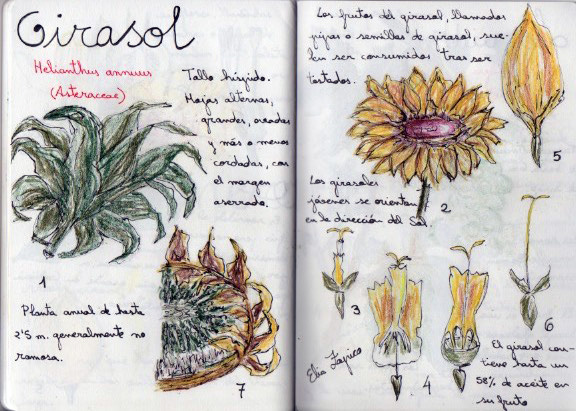 Girasol
Helianthus annuus
(Asteraceae)
Tallo hirsuto.
Hojas alternas,
grandes, ovadas
y más o menos
cordadas, con
el margen
aserrado.
1
Planta anual de hasta
2'5 m. generalmente no
ramosa.
7
Los frutos del girasol, llamados
pipas o semillas de girasol, sue-
len ser consumidos tras ser
tostados.
5
2
Los girasoles
jóvenes se orientan
en la dirección del Sol.
3
4
6
El girasol con-
tiene hasta un
58% de aceite en
su fruto